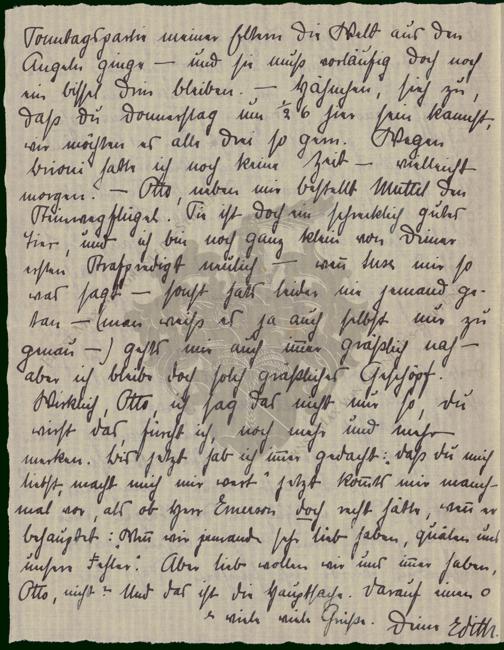 Sonntagspartie meiner Eltern die Welt aus den
Angeln ginge – und sie muß vorläufig doch noch
ein bissel drin bleiben. – Hähnchen, sieh zu,
daß du Donnerstag um ½ 6 hier sein kannst,
wir möchten es alle drei so gern. Wegen
Brioni hatte ich noch keine Zeit – vielleicht
morgen. – Otto, neben mir bestellt Muttel den
Steinwegflügel. Sie ist doch ein schrecklich gutes
Tier, und ich bin noch ganz klein von Deiner
ersten Strafpredigt neulich – wenn einer mir so
was sagt – sonst hats leider nie jemand ge-
tan – (man weiß es ja auch selbst nur zu
genau –) gehts mir auch immer gräßlich nah –
aber ich bleibe doch solch gräßliches Geschöpf.
Wirklich, Otto, ich sag das nicht nur so, du
wirst das, fürcht ich, noch mehr und mehr
merken. Bis jetzt hab ich immer gedacht: "daß du mich
liebst, macht mich mir wert" jetzt kommts mir manch-
mal vor, als ob Herr Emerson doch recht hätte, wenn er
behauptet: "Wenn wir jemanden sehr lieb haben, quälen uns
unsere Fehler". Aber lieb wollen wir uns immer haben,
Otto, nicht? Und das ist die Hauptsache. Darauf einen o
viele viele Grüße. Deine Edith.